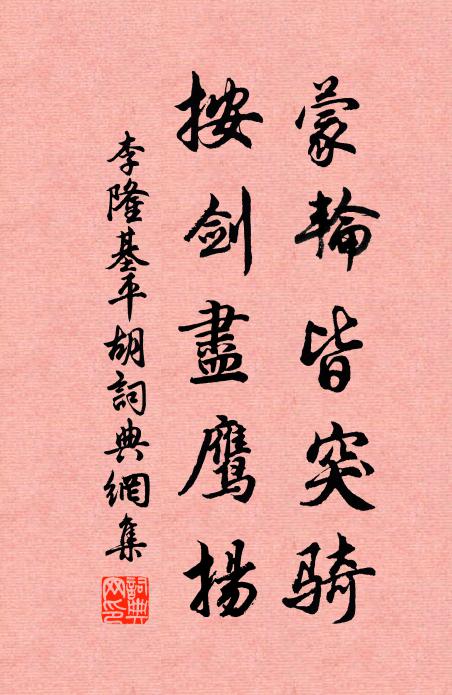 蒙輪皆突骑
按劍盡鹰揚
李隆基平胡詞典網集
詞典网印